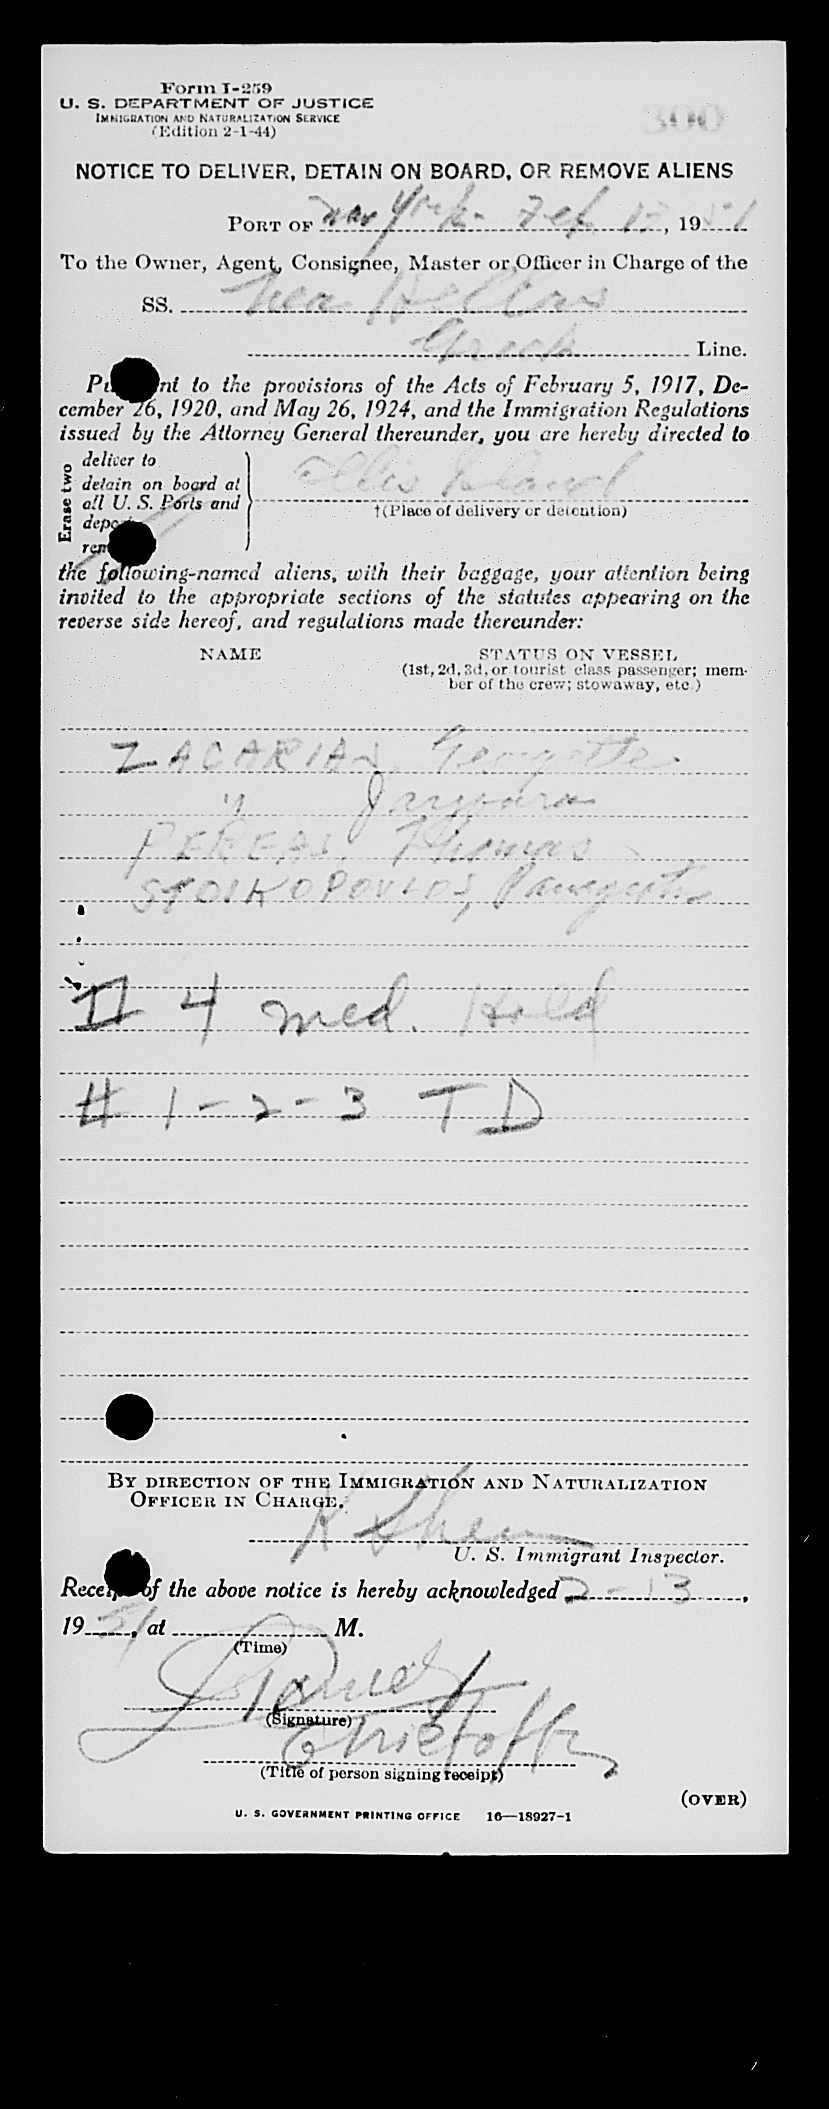 Form I-259
U. S. DEPARTMENT OF JUSTICE
IMMIGRATION AND NATURALIZATION SERVICE
(Edition 2-1-44)
300
NOTICE TO DELIVER, DETAIN ON BOARD, OR REMOVE ALIENS
PORT OF New York - Feb 13, 1951
To the Owner, Agent, Consignee, Master or Officer in Charge of the
SS. Nea Hellas
Greek Line.
Pu nt to the provisions of the Acts of February 5, 1917, De-
cember 26, 1920, and May 26, 1924, and the Immigration Regulations
issued by the Attorney General thereunder, you are hereby directed to
Erase two
deliver to
detain on board at
all U. S. Ports and
depo
rem
Ellis Island
†(Place of delivery or detention)
the following-named aliens, with their baggage, your attention being
invited to the appropriate sections of the statutes appearing on the
reverse side hereof, and regulations made thereunder:
NAME
STATUS ON VESSEL
(1st, 2d, 3d, or tourist class passenger; mem-
ber of the crew; stowaway, etc.)
ZACARIAS, Georgette
"
PEREAS, Thomas
STOIKOPOULOS,
# 4 med. Hold
# 1-2-3 TD
BY DIRECTION OF THE IMMIGRATION AND NATURALIZATION
OFFICER IN CHARGE.
K Shea
U. S. Immigrant Inspector.
Receip of the above notice is hereby acknowledged 2-13,
1951, at M.
(Time)
(Signature)
(Title of person signing receipt)
(OVER)
U. S. GOVERNMENT PRINTING OFFICE 16—18927-1